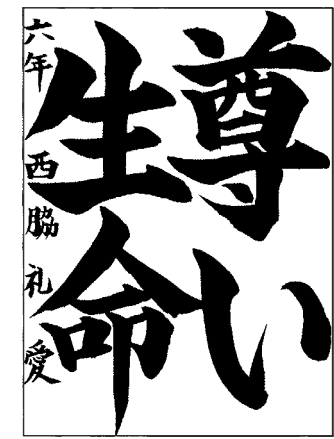 尊い
生命
六年 西脇礼愛